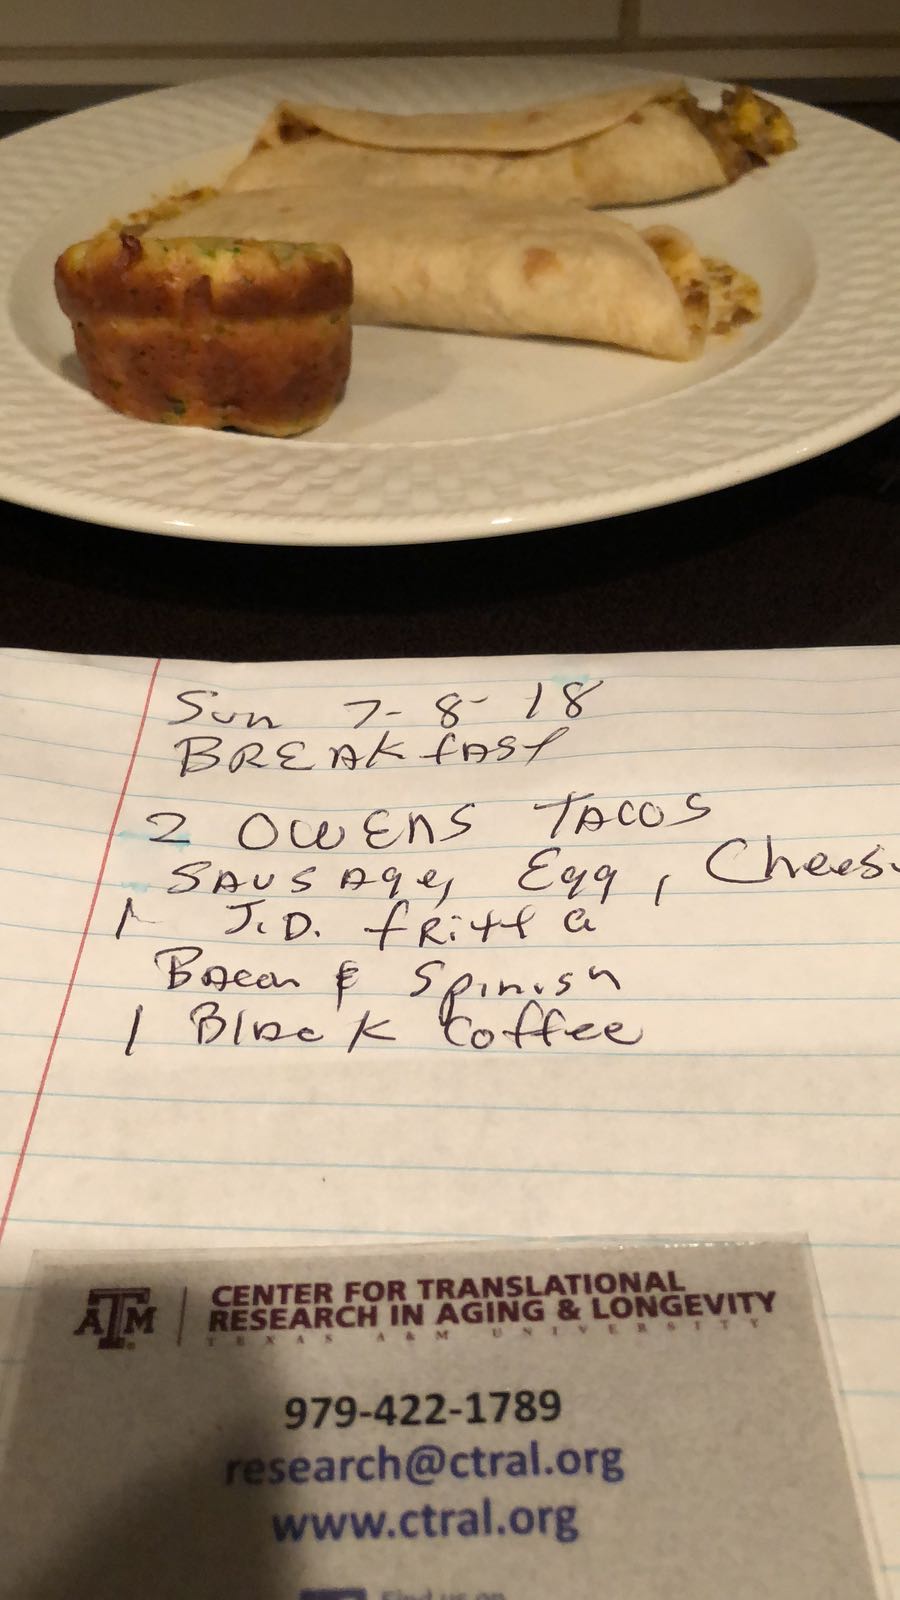 Sun 7-8-18
BREAKfAST
2 OWENS TACOS
SAUSAge, Egg, Chees
1 J.D. fRitta
Bacon & Spinish
1 Black Coffee
ATM
CENTER FOR TRANSLATIONAL
RESEARCH IN AGING & LONGEVITY
TEXAS A&M UNIVERSITY
979-422-1789
research@ctral.org
www.ctral.org
Find us on